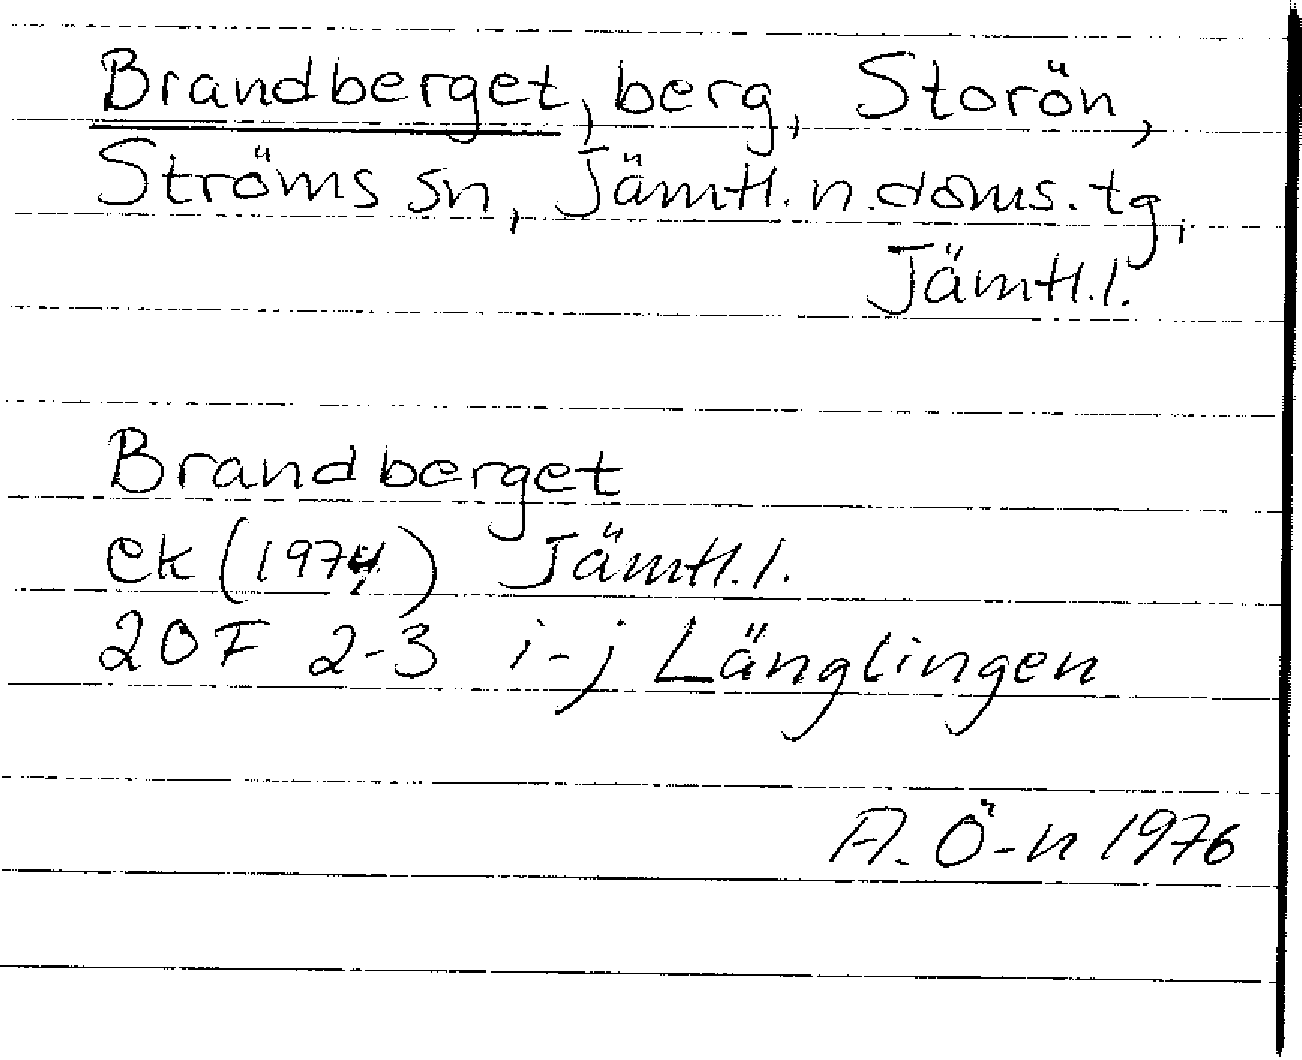 Brandberget, berg, Storön,
Ströms sn, Jämtl. n. doms. tg,
Jämtl. l.
Brandberget
ek (1974) Jämtl. l.
20F 2-3 i-j Länglingen
A. Ö-n 1976